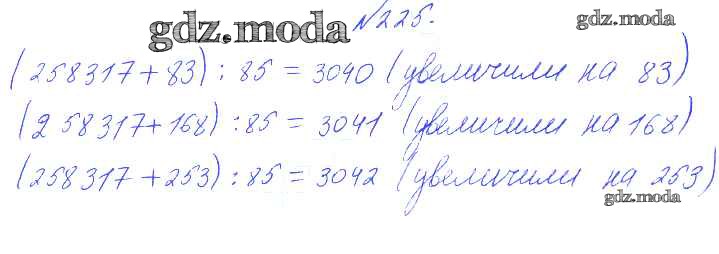 gdz.moda №225. gdz.moda
(258317+83):85=3040 (увеличили на 83)
(258317+168):85=3041 (увеличили на 168)
(258317+253):85=3042 (увеличили на 253)
gdz.moda